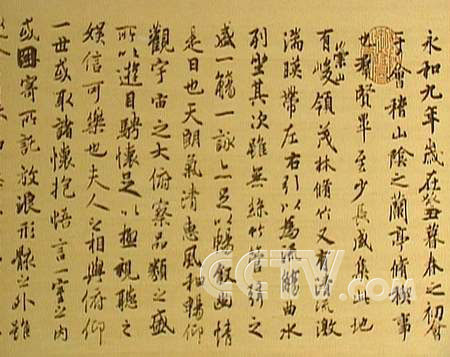 永和九年歲在癸丑暮春之初會
于會稽山陰之蘭亭脩禊事
也羣賢畢至少長咸集此地
有崇山峻領茂林脩竹又有清流激
湍暎帶左右引以為流觴曲水
列坐其次雖無絲竹管弦之
盛一觴一詠亦足以暢叙幽情
是日也天朗氣清惠風和暢仰
觀宇宙之大俯察品類之盛
所以遊目騁懷足以極視聽之
娛信可樂也夫人之相與俯仰
一世或取諸懷抱悟言一室之內
或因寄所託放浪形骸之外雖
CCTV.com